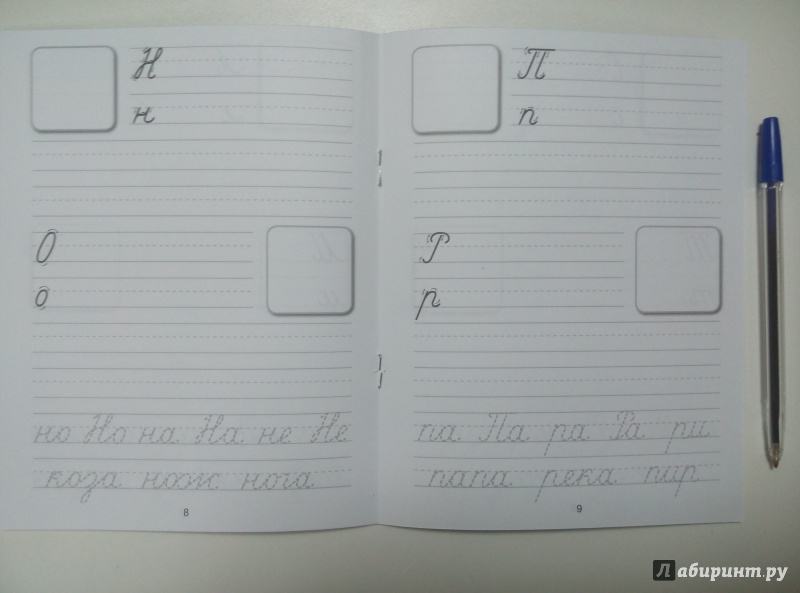 Н
н
О
о
но Но на На не Не
коза нож нога
8
П
п
Р
р
па Па ра Ра ри
папа река пир
9
Лабиринт.ру